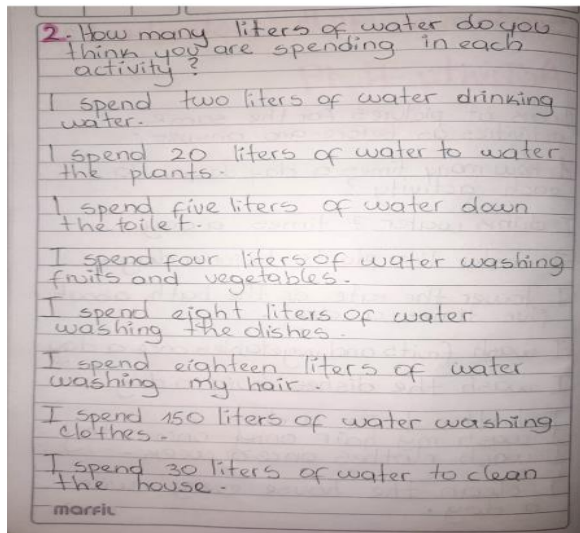 2.- How many liters of water do you
think you are spending in each
activity?
I spend two liters of water drinking
water.
I spend 20 liters of water to water
the plants.
I spend five liters of water down
the toilet.
I spend four liters of water washing
fruits and vegetables.
I spend eight liters of water
washing the dishes.
I spend eighteen liters of water
washing my hair.
I spend 150 liters of water washing
clothes.
I spend 30 liters of water to clean
the house.
marfil